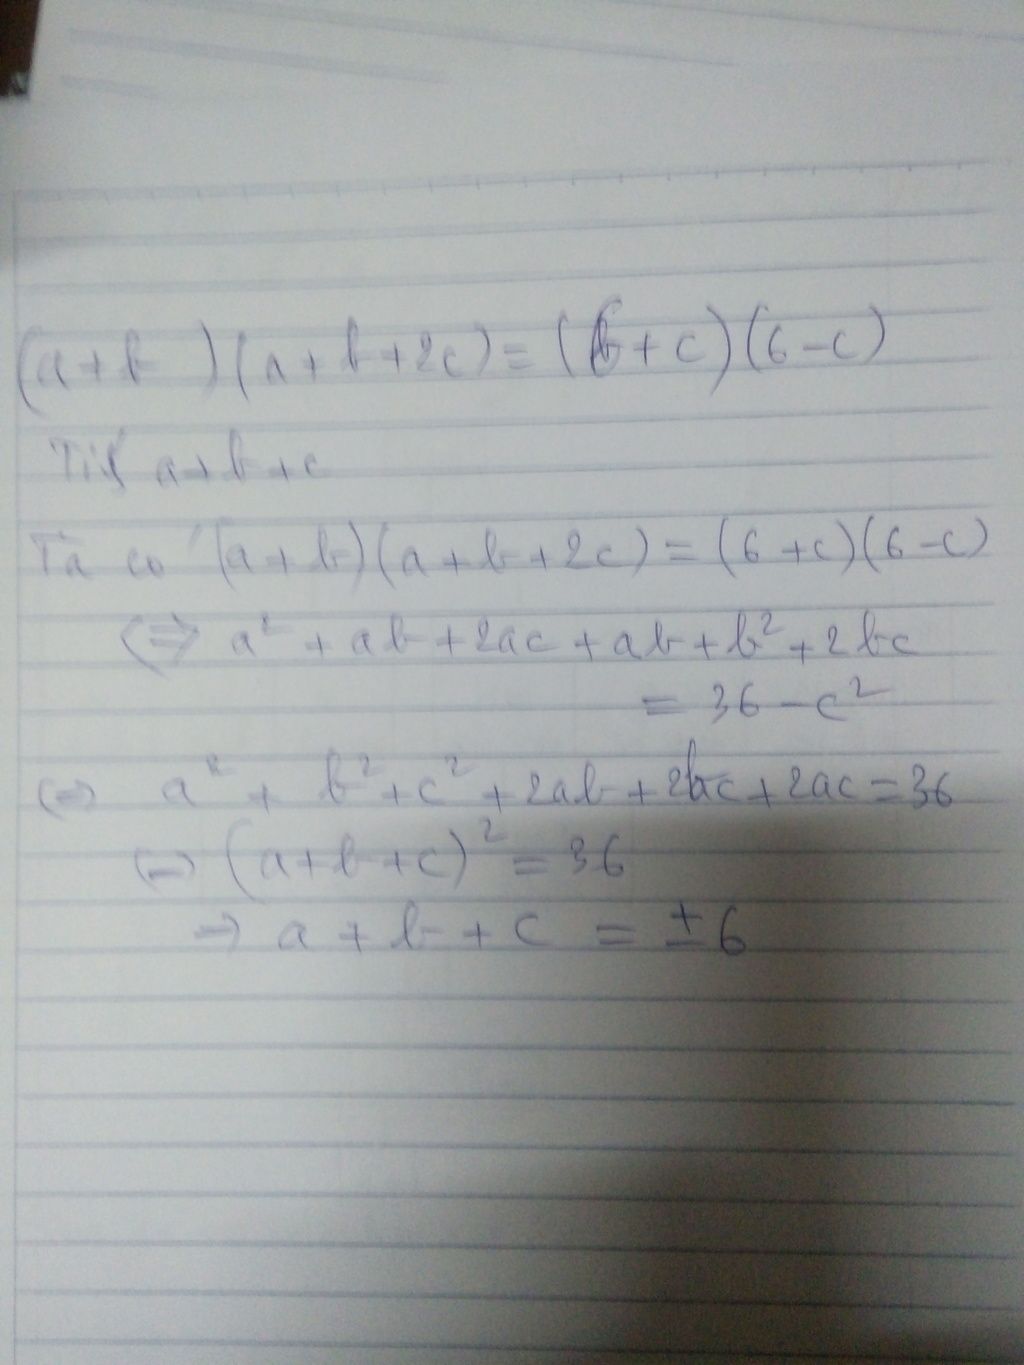 (a+b)(a+b+2c)=(6+c)(6-c)
a+b+c
Ta có (a+b)(a+b+2c)=(6+c)(6-c)
⇔ a²+ab+2ac+ab+b²+2bc
=36-c²
⇔ a²+b²+c²+2ab+2bc+2ac=36
⇔ (a+b+c)²=36
→ a+b+c=±6